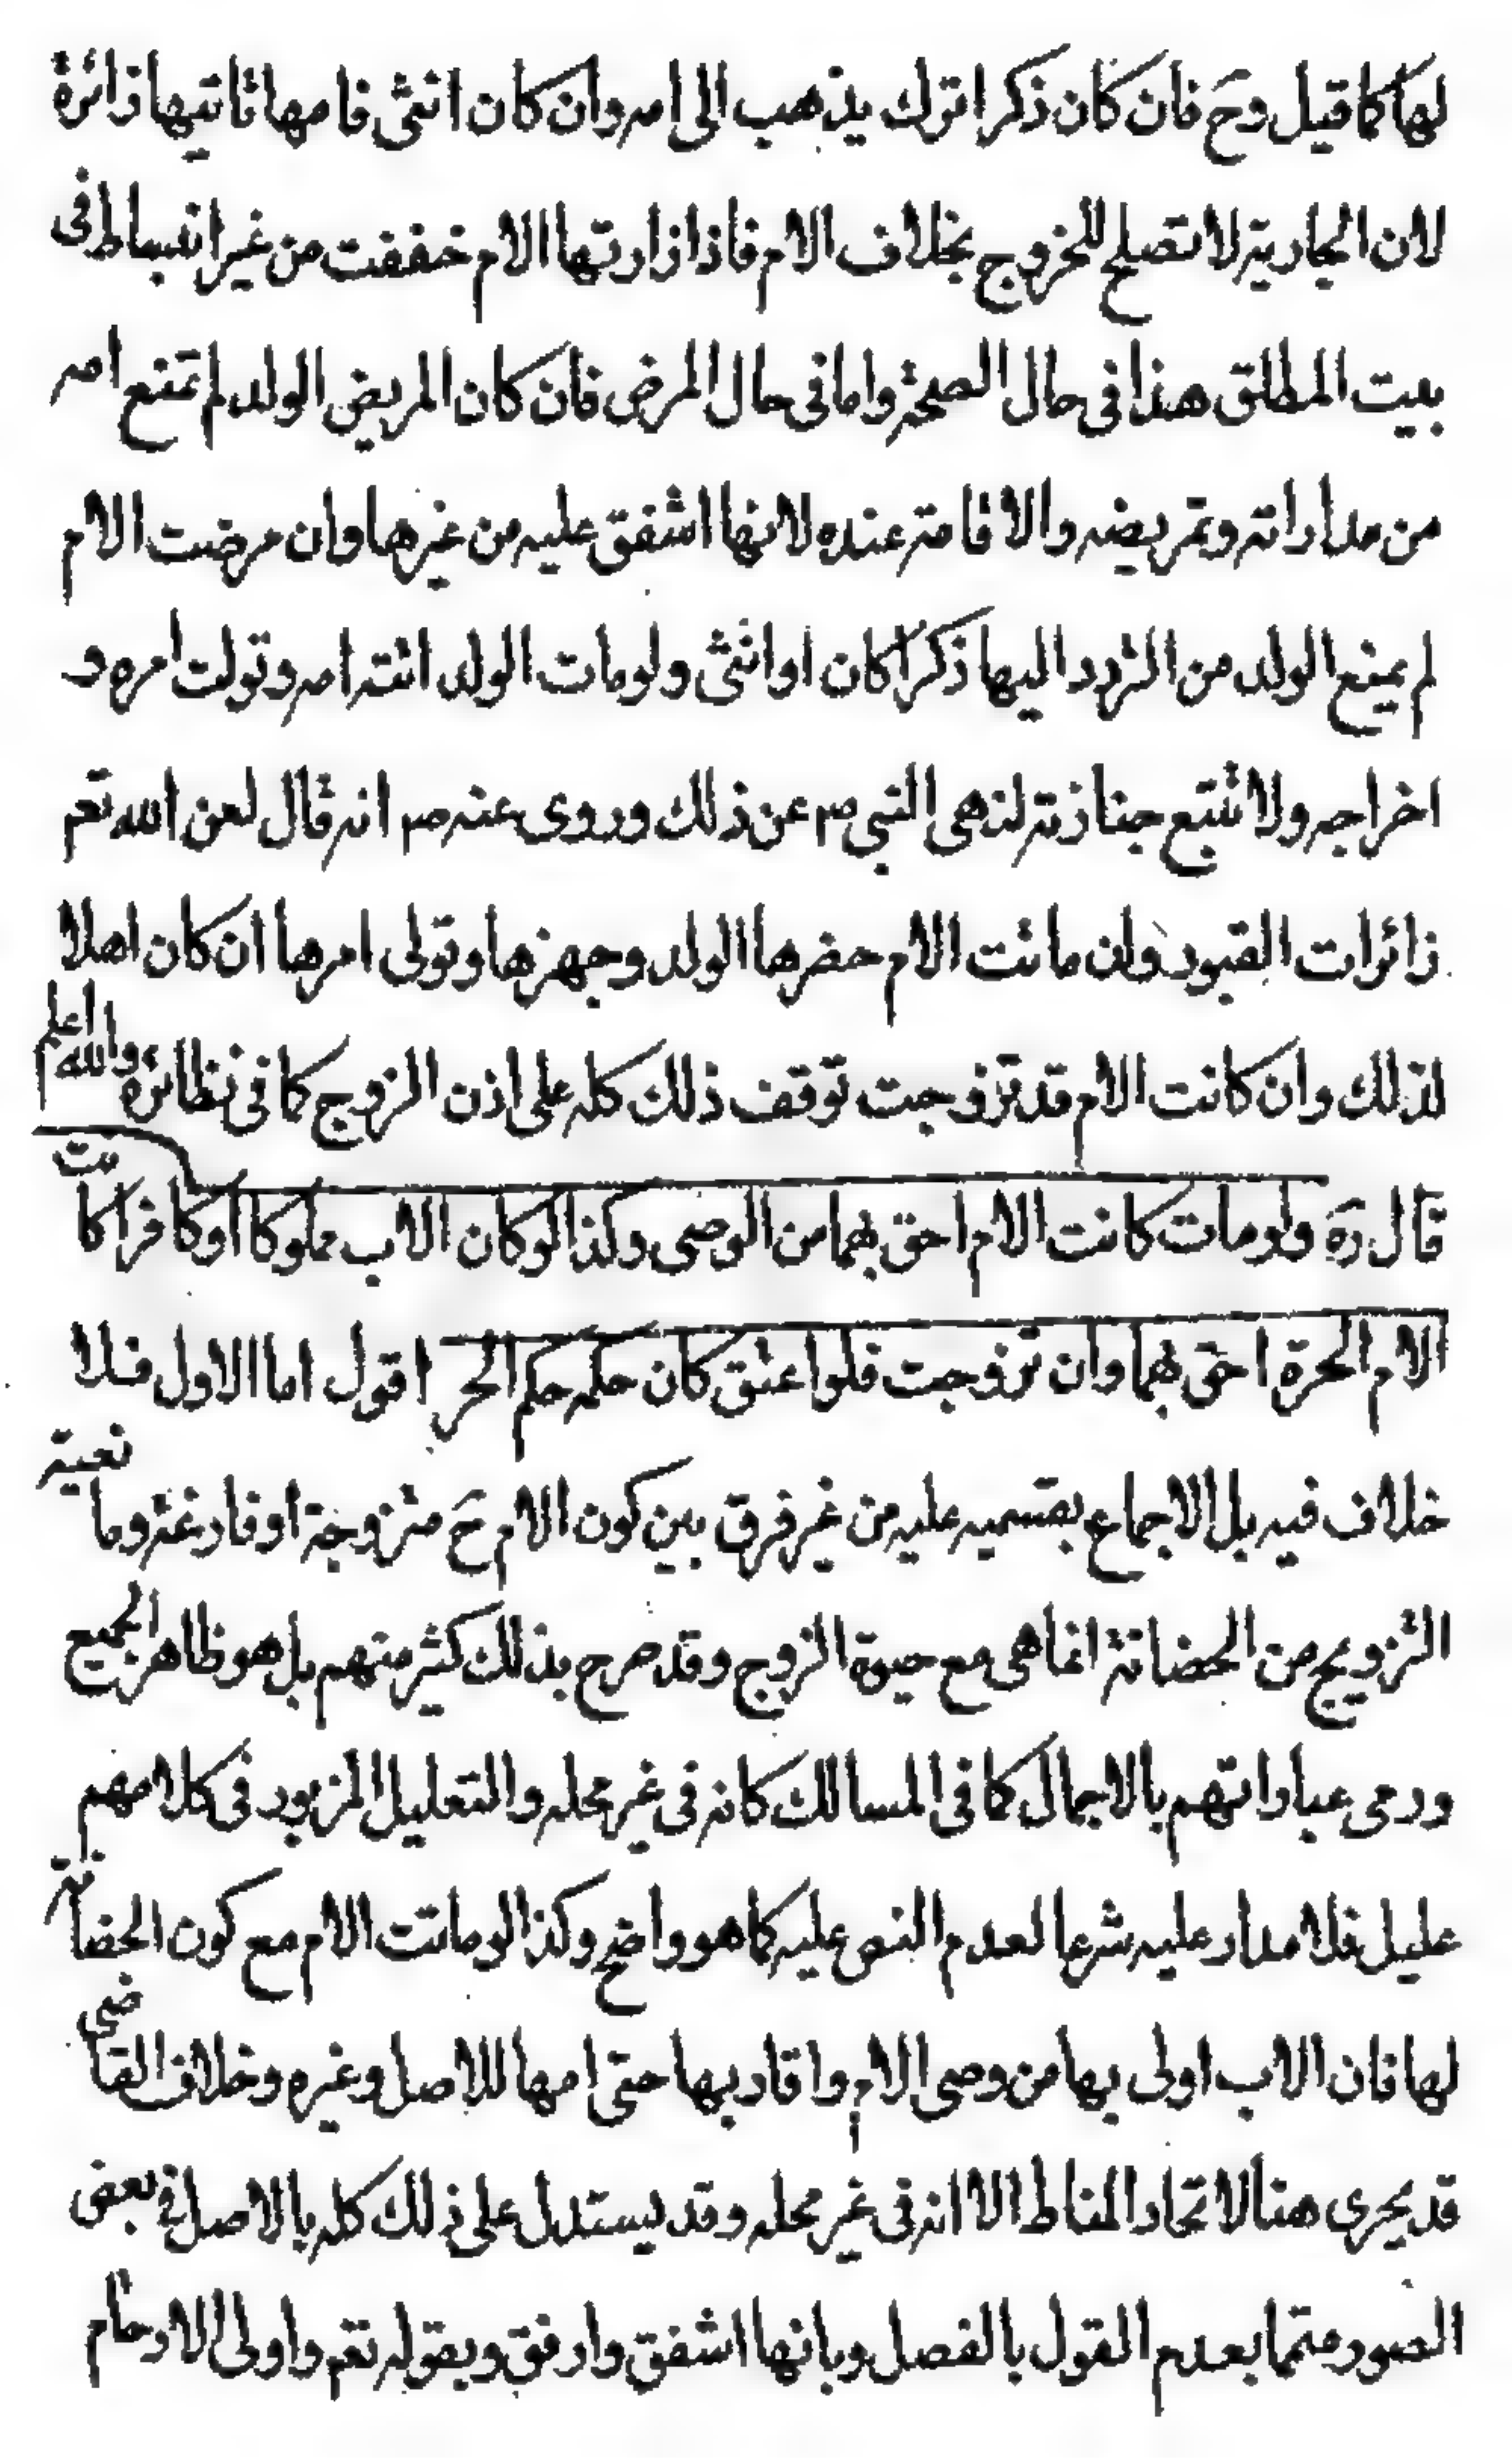 لها كما قيل وح فان كان ذكرا ترك يذهب الى امه وان كان انثى فامها تاتيها زائرة
لان الجارية لا تصلح للخروج بخلاف الام فاذا زارتها الام خففت من غير انبساط في
بيت المطلق هذا في حال الصحة واما في حال المرض فان كان المريض الولد لم تمنع امه
من مداراته وتمريضه والاقامة عنده لانها اشفق عليه من غيرها وان مرضت الام
لم يمنع الولد من التردد اليها ذكرا كان او انثى ولو مات الولد اتته امه وتولت امره و
اخراجه ولا تتبع جنازته لنهى النبي ص عن ذلك وروى عنه ص انه قال لعن الله تعم
زائرات القبور وان ماتت الام حضرها الولد وجهزها وتولى امرها ان كان اهلا
لذلك وان كانت الام قد تزوجت توقف ذلك كله على اذن الزوج كما في نظائره والله اعلم
قال ره ولو مات كانت الام احق بهما من الوصى وكذا لو كان الاب مملوكا او كافرا كانت
الام الحرة احق بهما وان تزوجت فلو اعتق كان حكمه حكم الحر اقول اما الاول فلا
خلاف فيه بل الاجماع بقسميه عليه من غير فرق بين كون الام ح متزوجة او فارغة وما نعية
التزويج من الحضانة انما هى مع حيوة الزوج وقد صرح بذلك كثير منهم بل هو ظاهر الجميع
ورمى عباراتهم بالاجمال كما في المسالك كانه في غير محله والتعليل المزبور في كلامهم
عليل فلا مدار عليه شرعا لعدم النص عليه كما هو واضح وكذا لو ماتت الام مع كون الحضانة
لها فان الاب اولى بها من وصى الام واقاربها حتى امها للاصل وغيره وخلاف القاضى
قد يجرى هنا لاتحاد المناط الا انه في غير محله وقد يستدل على ذلك كله بالاصل في بعض
الصور متمما بعدم القول بالفصل وبانها اشفق وارفق وبقوله تعم واولى الارحام